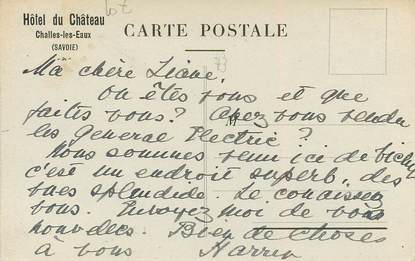 Hôtel du Château
Challes-les-Eaux
(SAVOIE)
CARTE POSTALE
73
Ma chère Liane,
Ou êtes vous et que
faites vous? Avez vous vendu
les General Electric?
Nous sommes venu ici de Vichy
c'est un endroit superb, des
vues splendide. Le conaissez
vous. Envoyez moi de vos
nouvelles. Bien de choses
à vous